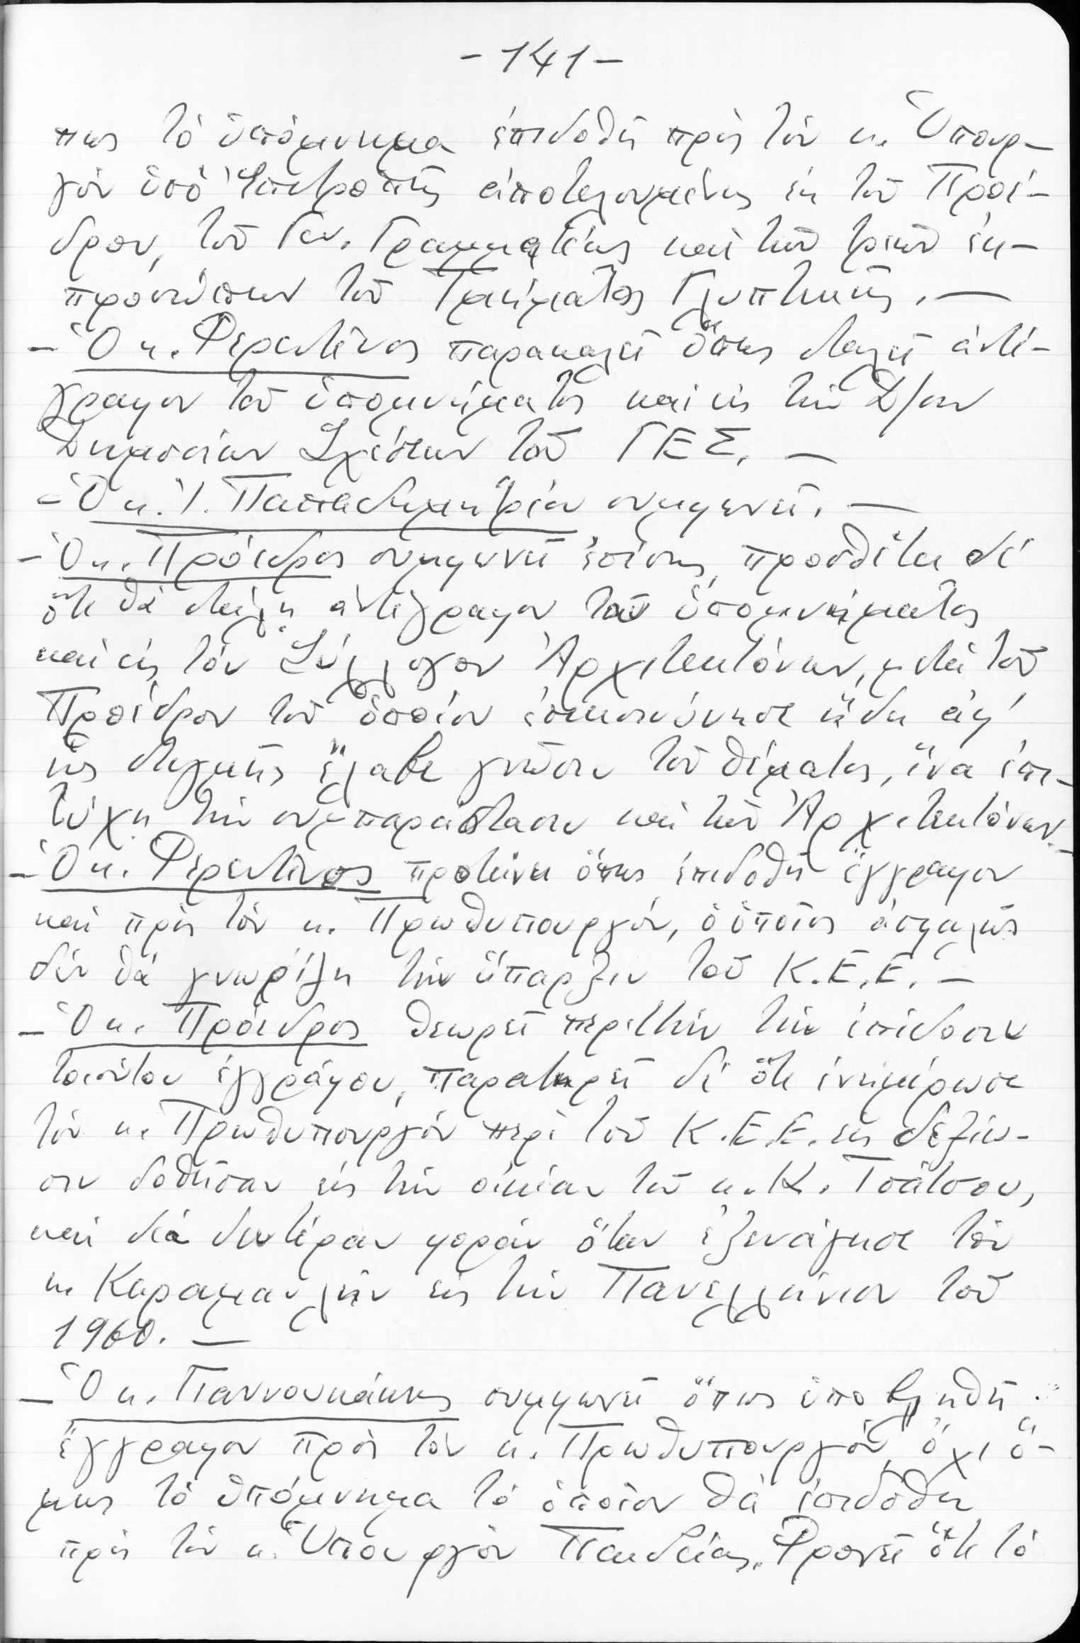 -141-
πως τὸ ὑπόμνημα ἐπιδοθῇ πρὸς τὸν κ. Ὑπουρ-
γὸν ὑπὸ Ἐπιτροπῆς ἀποτελουμένης ἐκ τοῦ Προέ-
δρου, τοῦ Γεν. Γραμματέως καὶ τῶν τριῶν ἐκ-
προσώπων τοῦ Τμήματος Γλυπτικῆς.—
-Ὁ κ. Φερεντῖνος παρακαλεῖ ὅπως σταλεῖ ἀντί-
γραφον τοῦ ὑπομνήματος καὶ εἰς τὴν Δ/σιν
Δημοσίων Σχέσεων τοῦ ΓΕΣ.—
-Ὁ κ. Ἰ. Παπαδημητρίου συμφωνεῖ.—
-Ὁ κ. Πρόεδρος συμφωνεῖ ἐπίσης, προσθέτει δὲ
ὅτι θὰ στείλῃ ἀντίγραφον τοῦ ὑπομνήματος
καὶ εἰς τὸν Σύλλογον Ἀρχιτεκτόνων, μετὰ τοῦ
Προέδρου τοῦ ὁποίου ἐπεκοινώνησε ἤδη ἀφ'
ἧς στιγμῆς ἔλαβε γνῶσιν τοῦ θέματος, ἵνα ἐπι-
τύχῃ τὴν συμπαράστασιν καὶ τῶν Ἀρχιτεκτόνων.-
-Ὁ κ. Φερεντῖνος προτείνει ὅπως ἐπιδοθῇ ἔγγραφον
καὶ πρὸς τὸν κ. Πρωθυπουργόν, ὁ ὁποῖος ἀσφαλῶς
δὲν θὰ γνωρίζῃ τὴν ὕπαρξιν τοῦ Κ.Ε.Ε.—
-Ὁ κ. Πρόεδρος θεωρεῖ περιττὴν τὴν ἐπίδοσιν
τοιούτου ἐγγράφου, παρατηρεῖ δὲ ὅτι ἐνημέρωσε
τὸν κ. Πρωθυπουργὸν περὶ τοῦ Κ.Ε.Ε. εἰς δεξίω-
σιν δοθεῖσαν εἰς τὴν οἰκίαν τοῦ κ. Κ. Τσάτσου,
καὶ διὰ δευτέραν φορὰν ὅταν ἐξενάγησε τὸν
κ. Καραμανλῆν εἰς τὴν Πανελλήνιον τοῦ
1960.—
-Ὁ κ. Γιαννουκάκης συμφωνεῖ ὅπως ὑποβληθῇ
ἔγγραφον πρὸς τὸν κ. Πρωθυπουργόν, ὄχι ὅ-
μως τὸ ὑπόμνημα τὸ ὁποῖον θὰ ἐπιδοθῇ
πρὸς τὸν κ. Ὑπουργὸν Παιδείας. Φρονεῖ ὅτι τὸ